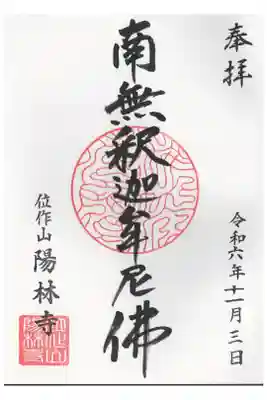 奉拝
令和六年十一月三日
南無釈迦牟尼佛
位作山 陽林寺